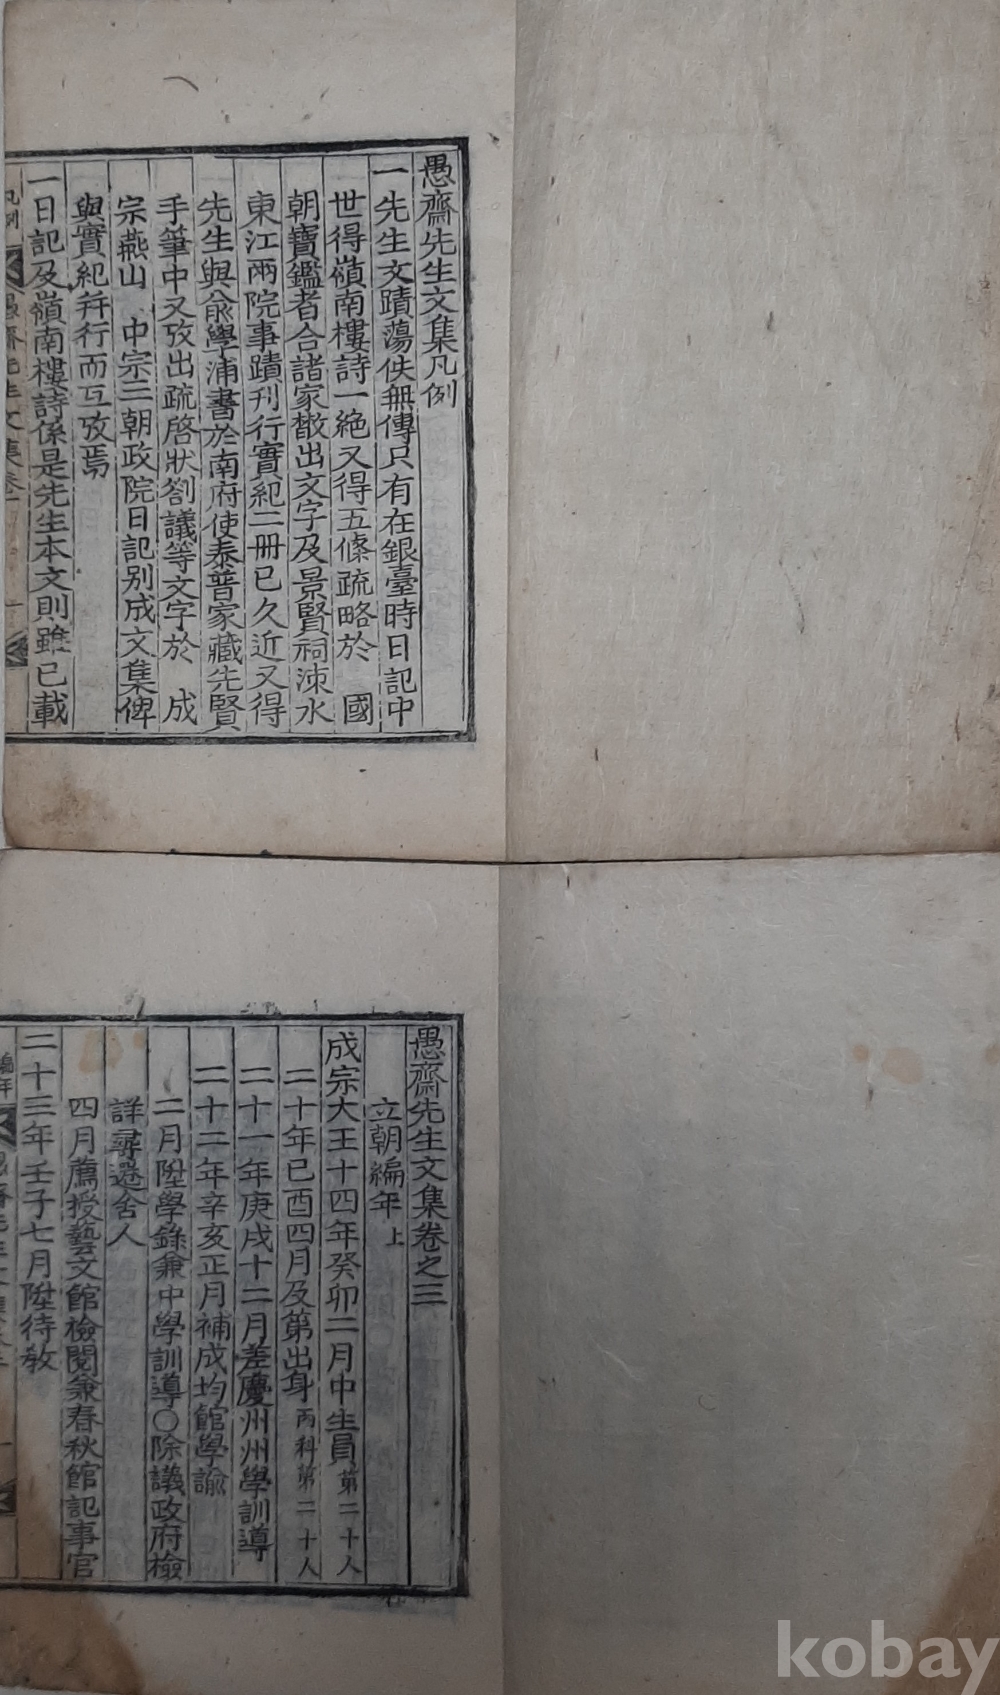 愚齋先生文集凡例
一先生文蹟蕩佚無傳只有在銀臺時日記中
世得嶺南樓詩一絶又得五條疏略於　國
朝寶鑑者合諸家散出文字及景賢祠涑水
東江兩院事蹟刊行實紀二冊已久近又得
先生與兪學浦書於南府使泰普家藏先賢
手筆中又攷出疏啓狀劄議等文字於　成
宗燕山　中宗三朝政院日記别成文集俾
與實紀幷行而互攷焉
一日記及嶺南樓詩係是先生本文則雖已載
凡例　愚齋先生文集卷一
愚齋先生文集卷之三
立朝編年上
成宗大王十四年癸卯二月中生員第二十人
二十年己酉四月及第出身丙科第二十人
二十一年庚戌十二月差慶州州學訓導
二十二年辛亥正月補成均館學諭
二月陞學錄兼中學訓導○除議政府檢
詳尋遷舍人
四月薦授藝文館檢閱兼春秋館記事官
二十三年壬子七月陞待敎
編年
kobay